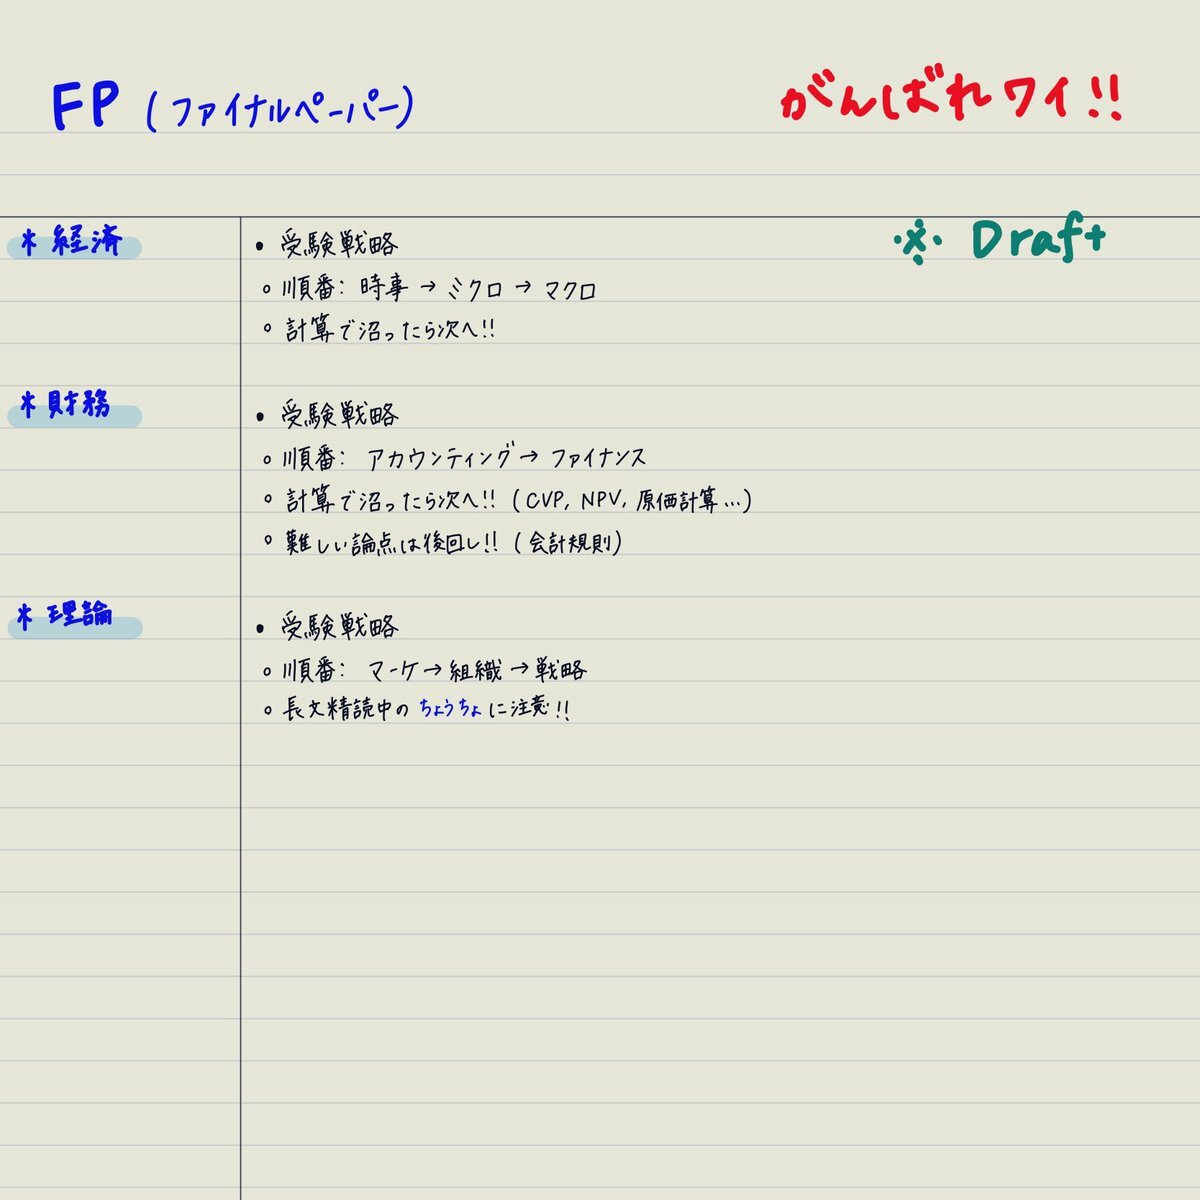 FP (ファイナルペーパー)
がんばれワイ!!
※ Draft
* 経済
• 受験戦略
○ 順番: 時事 → ミクロ → マクロ
○ 計算で沼ったら次へ!!
* 財務
• 受験戦略
○ 順番: アカウンティング → ファイナンス
○ 計算で沼ったら次へ!! (CVP, NPV, 原価計算...)
○ 難しい論点は後回し!! (会計規則)
* 理論
• 受験戦略
○ 順番: マーケ → 組織 → 戦略
○ 長文精読中のちょうちょに注意!!